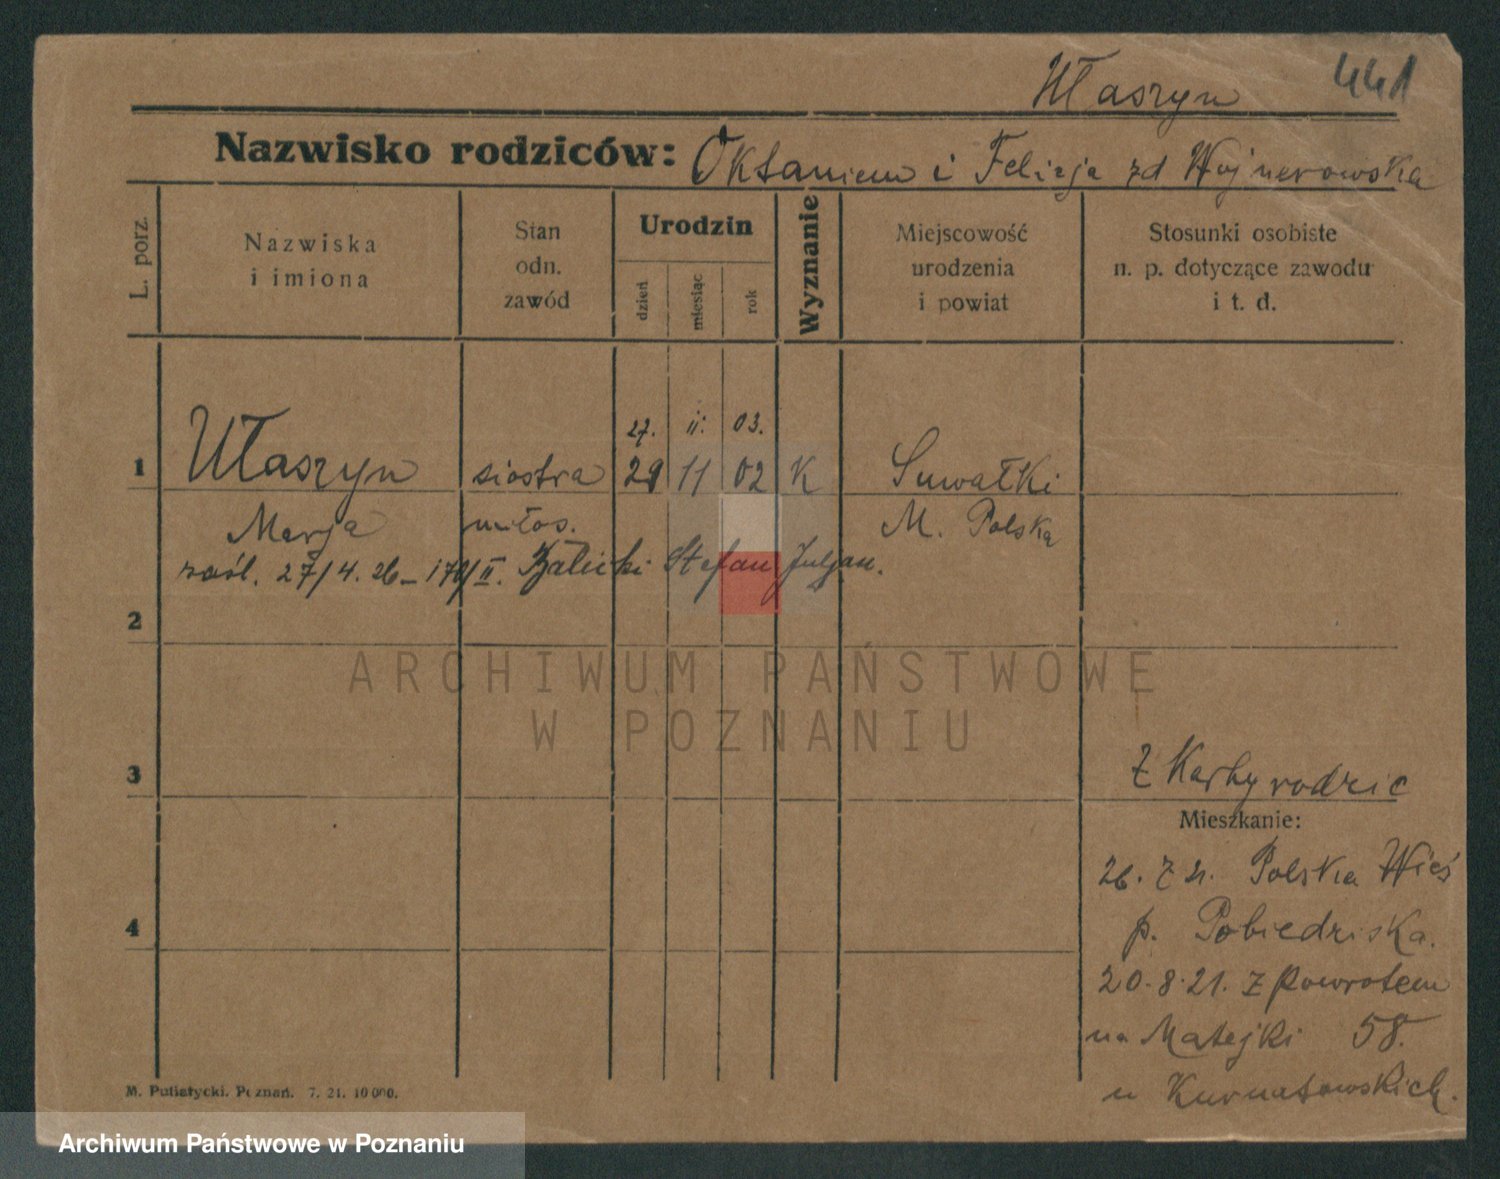 Ułaszyn 441
Nazwisko rodziców: Oktaniew i Felicja zd Wojnerowska
L. porz.
Nazwiska
i imiona
Stan
odn.
zawód
Urodzin
dzień
miesiąc
rok
Wyznanie
Miejscowość
urodzenia
i powiat
Stosunki osobiste
n. p. dotyczące zawodu
i t. d.
27. II. 03.
1 Ułaszyn siostra 29 11 02 K Suwałki
Marja miłos. M. Polska
zaśl. 27/4. 26 – II. Stefan Juljan.
2
ARCHIWUM PAŃSTWOWE
W POZNANIU
3
Z Karty rodzic
Mieszkanie:
26. 7 21. Polska Wieś
4
p. Pobiedziska.
20.8.21. z powrotem
na Matejki 58.
u Kurnatowskich.
M. Putiatycki. Poznań. 7. 21. 10 000.
Archiwum Państwowe w Poznaniu